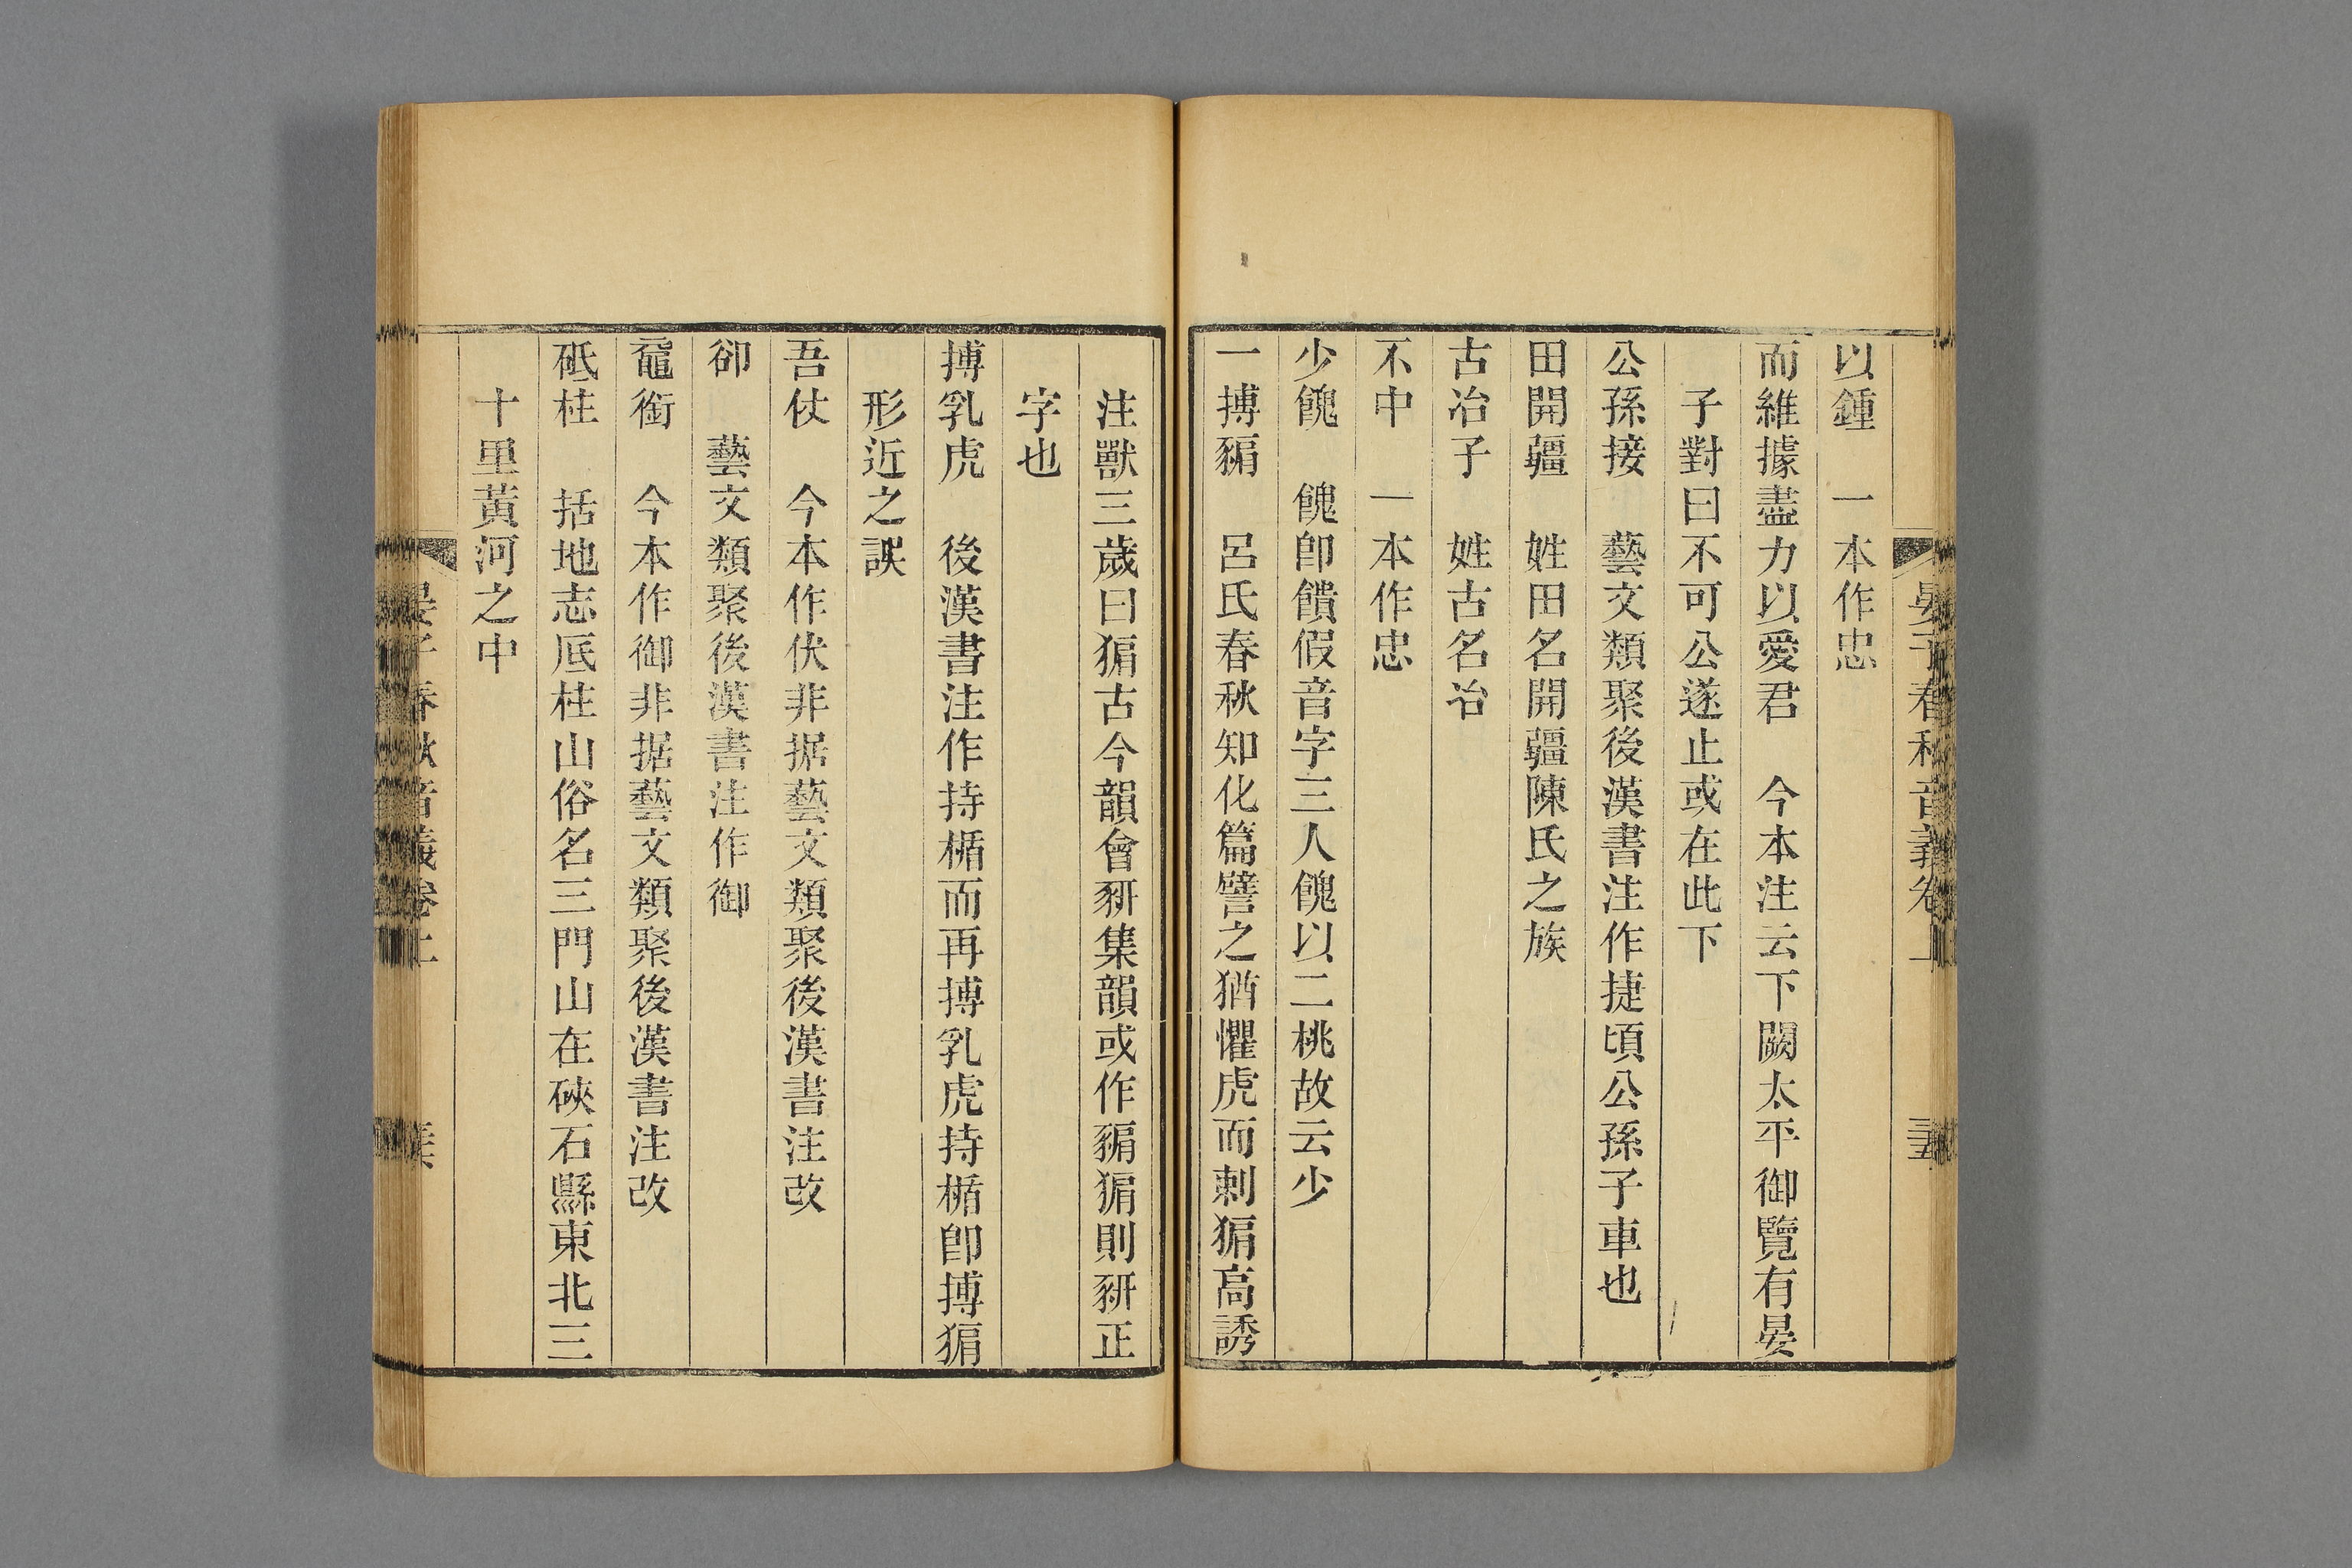 以鍾　一本作忠
而維據盡力以愛君　今本注云下闕太平御覽有晏
子對曰不可公遂止或在此下
公孫接　藝文類聚後漢書注作捷頃公孫子車也
田開疆　姓田名開疆陳氏之族
古冶子　姓古名冶
不中　一本作忠
少餽　餽卽饋假音字三人餽以二桃故云少
一搏豣　呂氏春秋知化篇譬之猶懼虎而刺猏高誘
注獸三歲曰猏古今韻會豣集韻或作豜猏則豣正
字也
搏乳虎　後漢書注作持楯而再搏乳虎持楯卽搏猏
形近之誤
吾仗　今本作伏非据藝文類聚後漢書注改
卻　藝文類聚後漢書注作御
黿銜　今本作御非据藝文類聚後漢書注改
砥柱　括地志厎柱山俗名三門山在硤石縣東北三
十里黃河之中
晏子春秋音義卷上